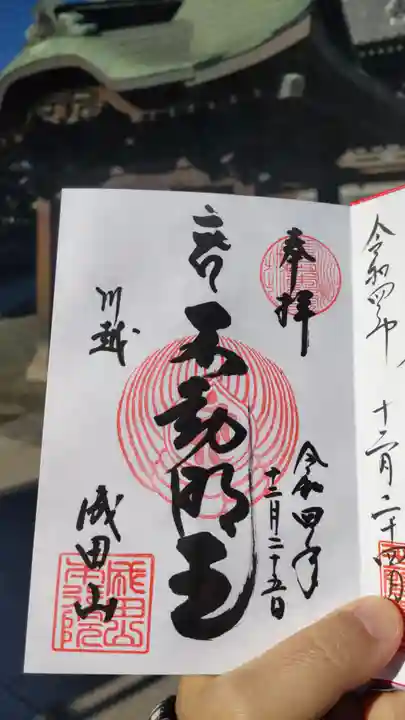 令和四年
十二月二十四日
奉拝
令和四年
十二月二十五日
不動明王
川越
成田山